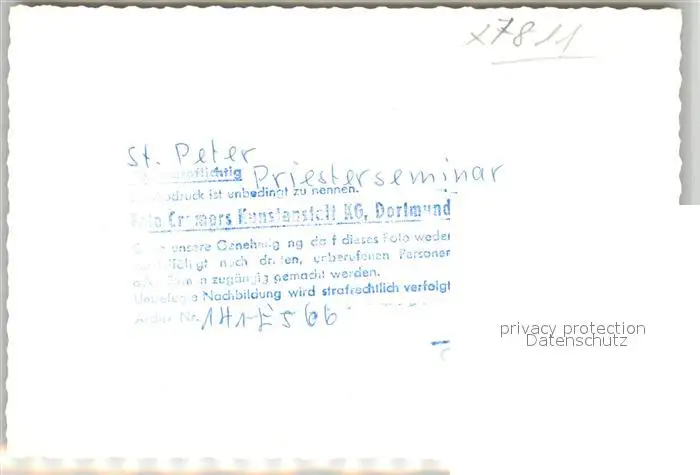 x7811
St. Peter
Priesterseminar
ist unbedingt zu nennen.
Foto Cramers Kunstanstalt KG, Dortmund
unsere Genehmigung darf dieses Foto weder
noch dritten, unberufenen Personen
zugängig gemacht werden.
Nachbildung wird strafrechtlich verfolgt
Archiv Nr. 141-E 566
privacy protection
Datenschutz